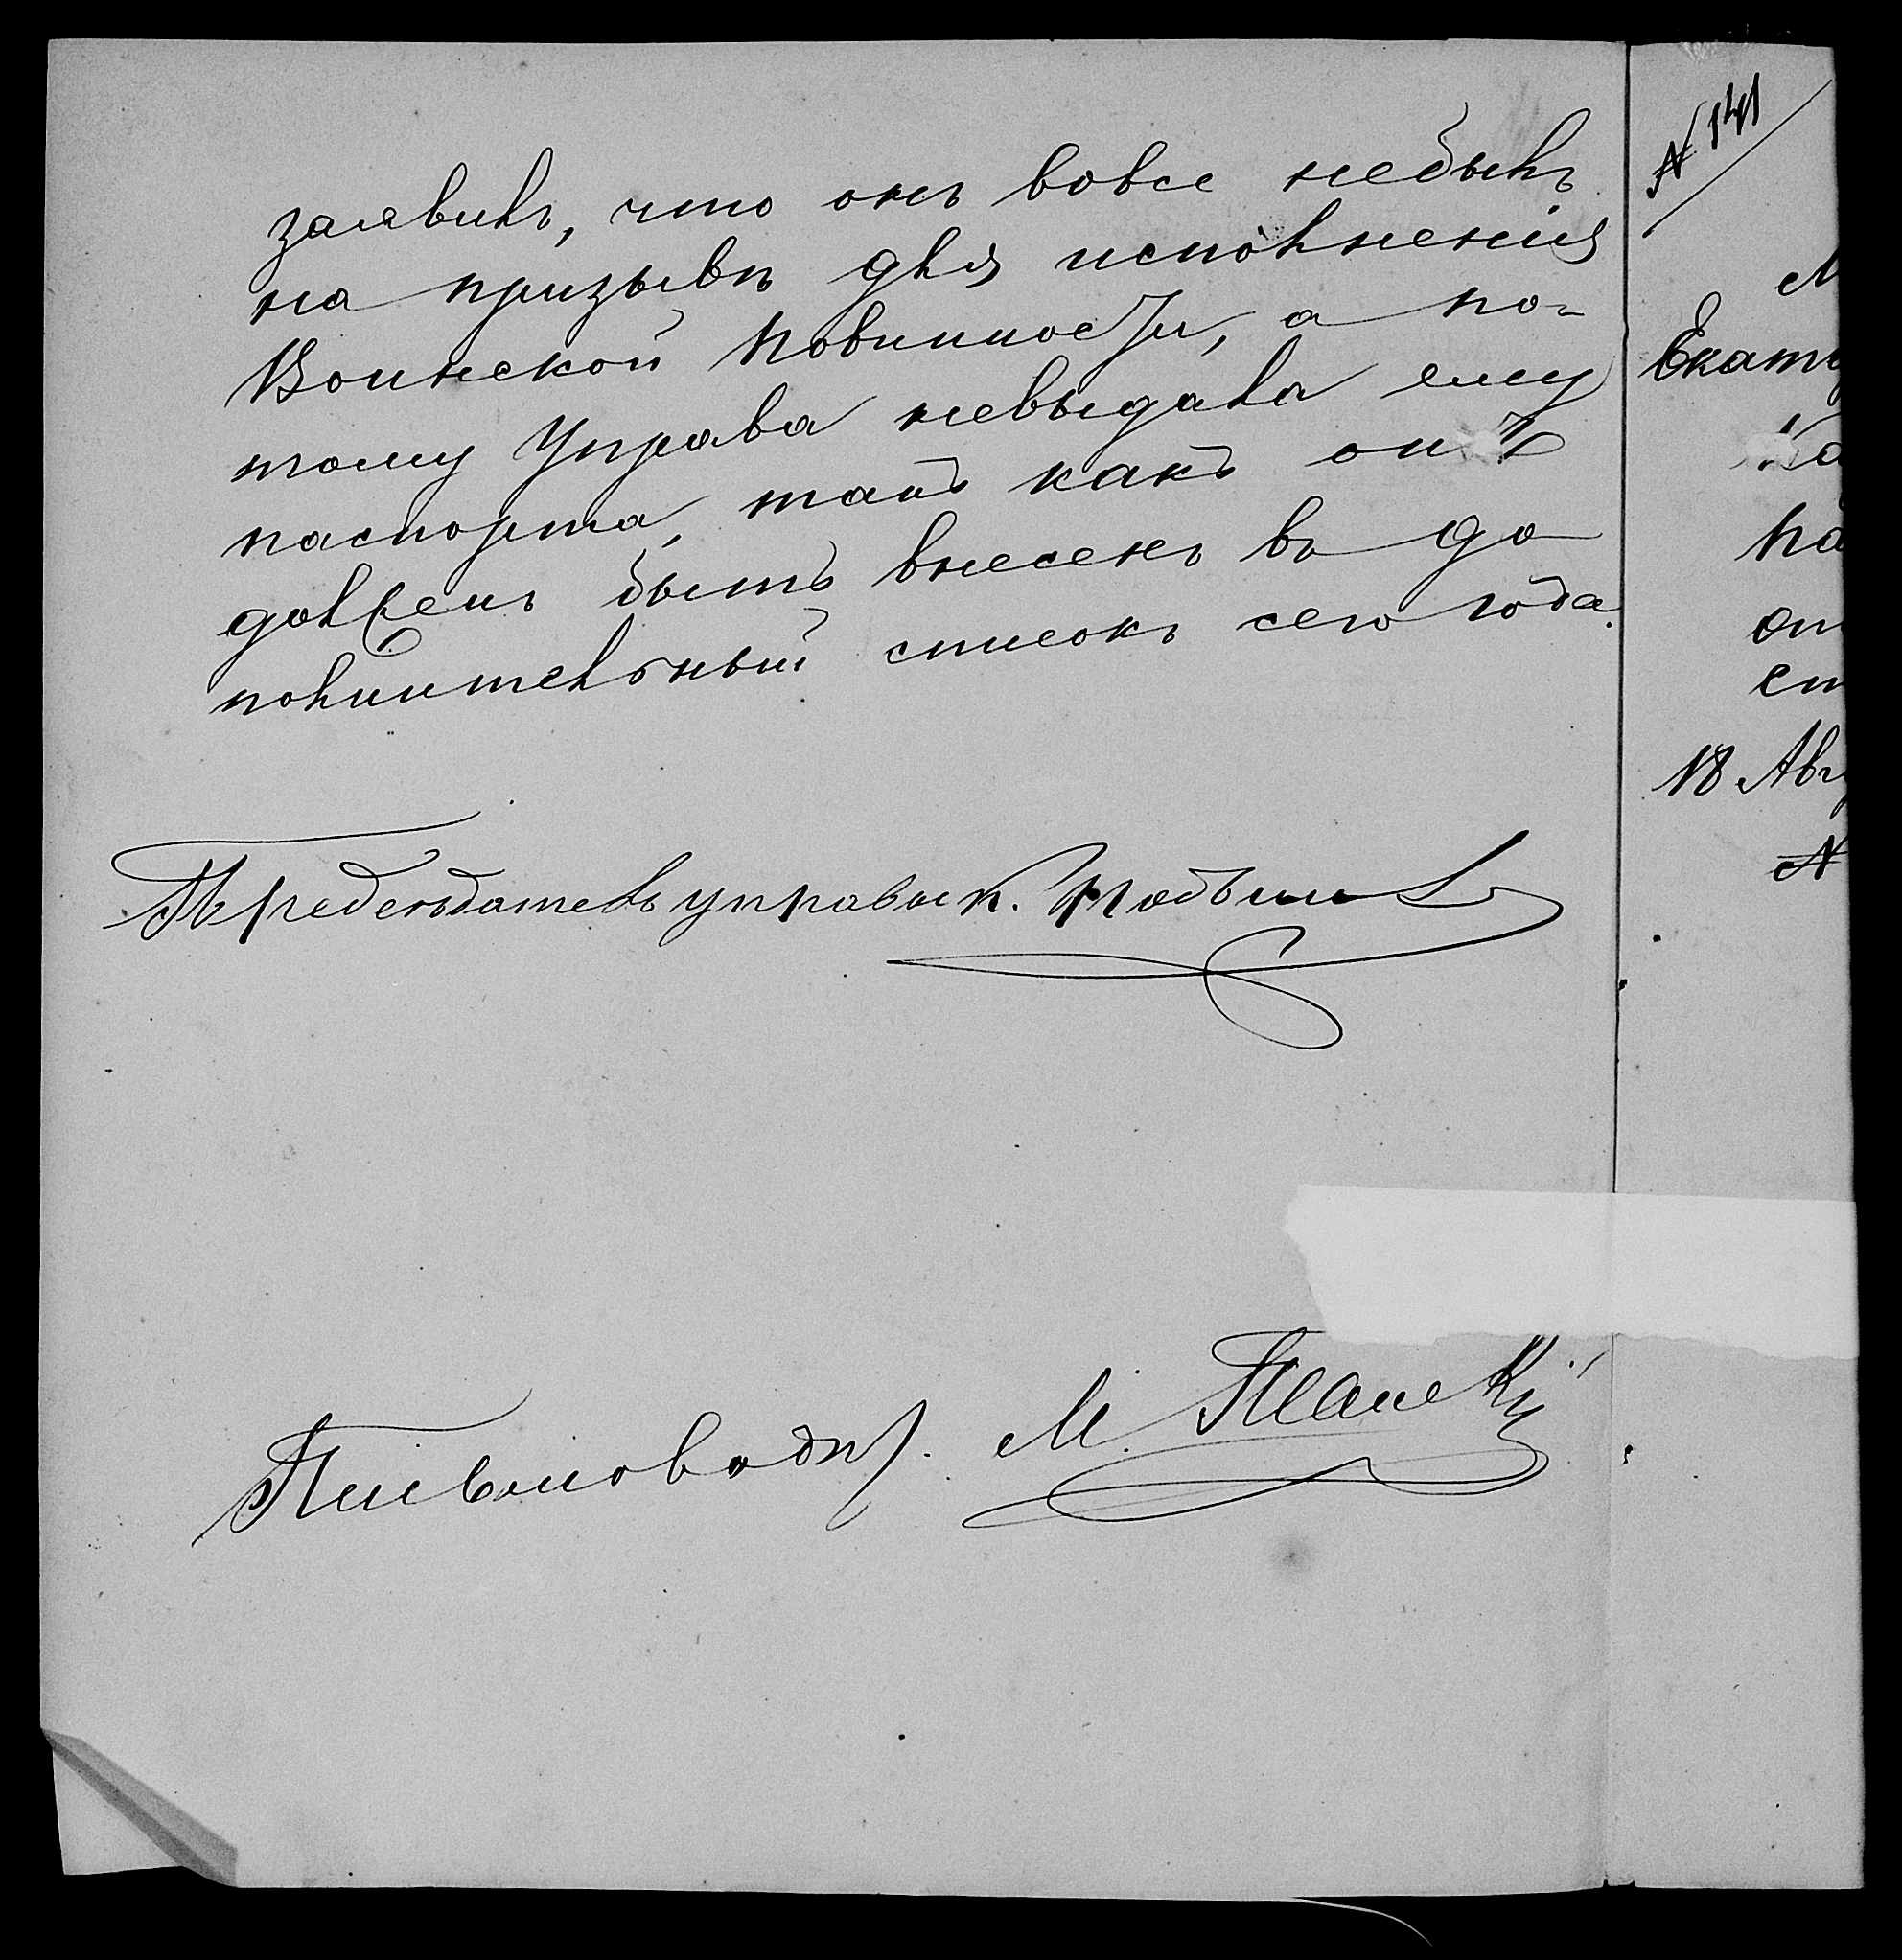 заявилъ, что онъ вовсе небылъ
на призывѣ для исполненія
Воинской повинности, а по-
тому Управа невыдала ему
паспорта, такъ какъ онъ
долженъ быть внесенъ въ до
полнительный списокъ сего года.
Предсѣдатель управы К.
Письмоводит. М.
№ 141
М
Екате
Ка
На
от
ст
18 Авгу
№